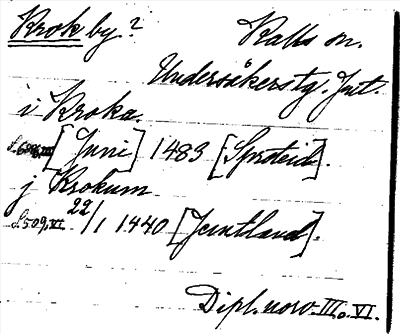 Krok by? Kalls sn.
Undersåkers tg. Jmt.
i Kroka.
[Juni] 1483
j Krokum
S.509.VI 22/1 1440 [Jemtland].
Dipl. norv. III o. VI.